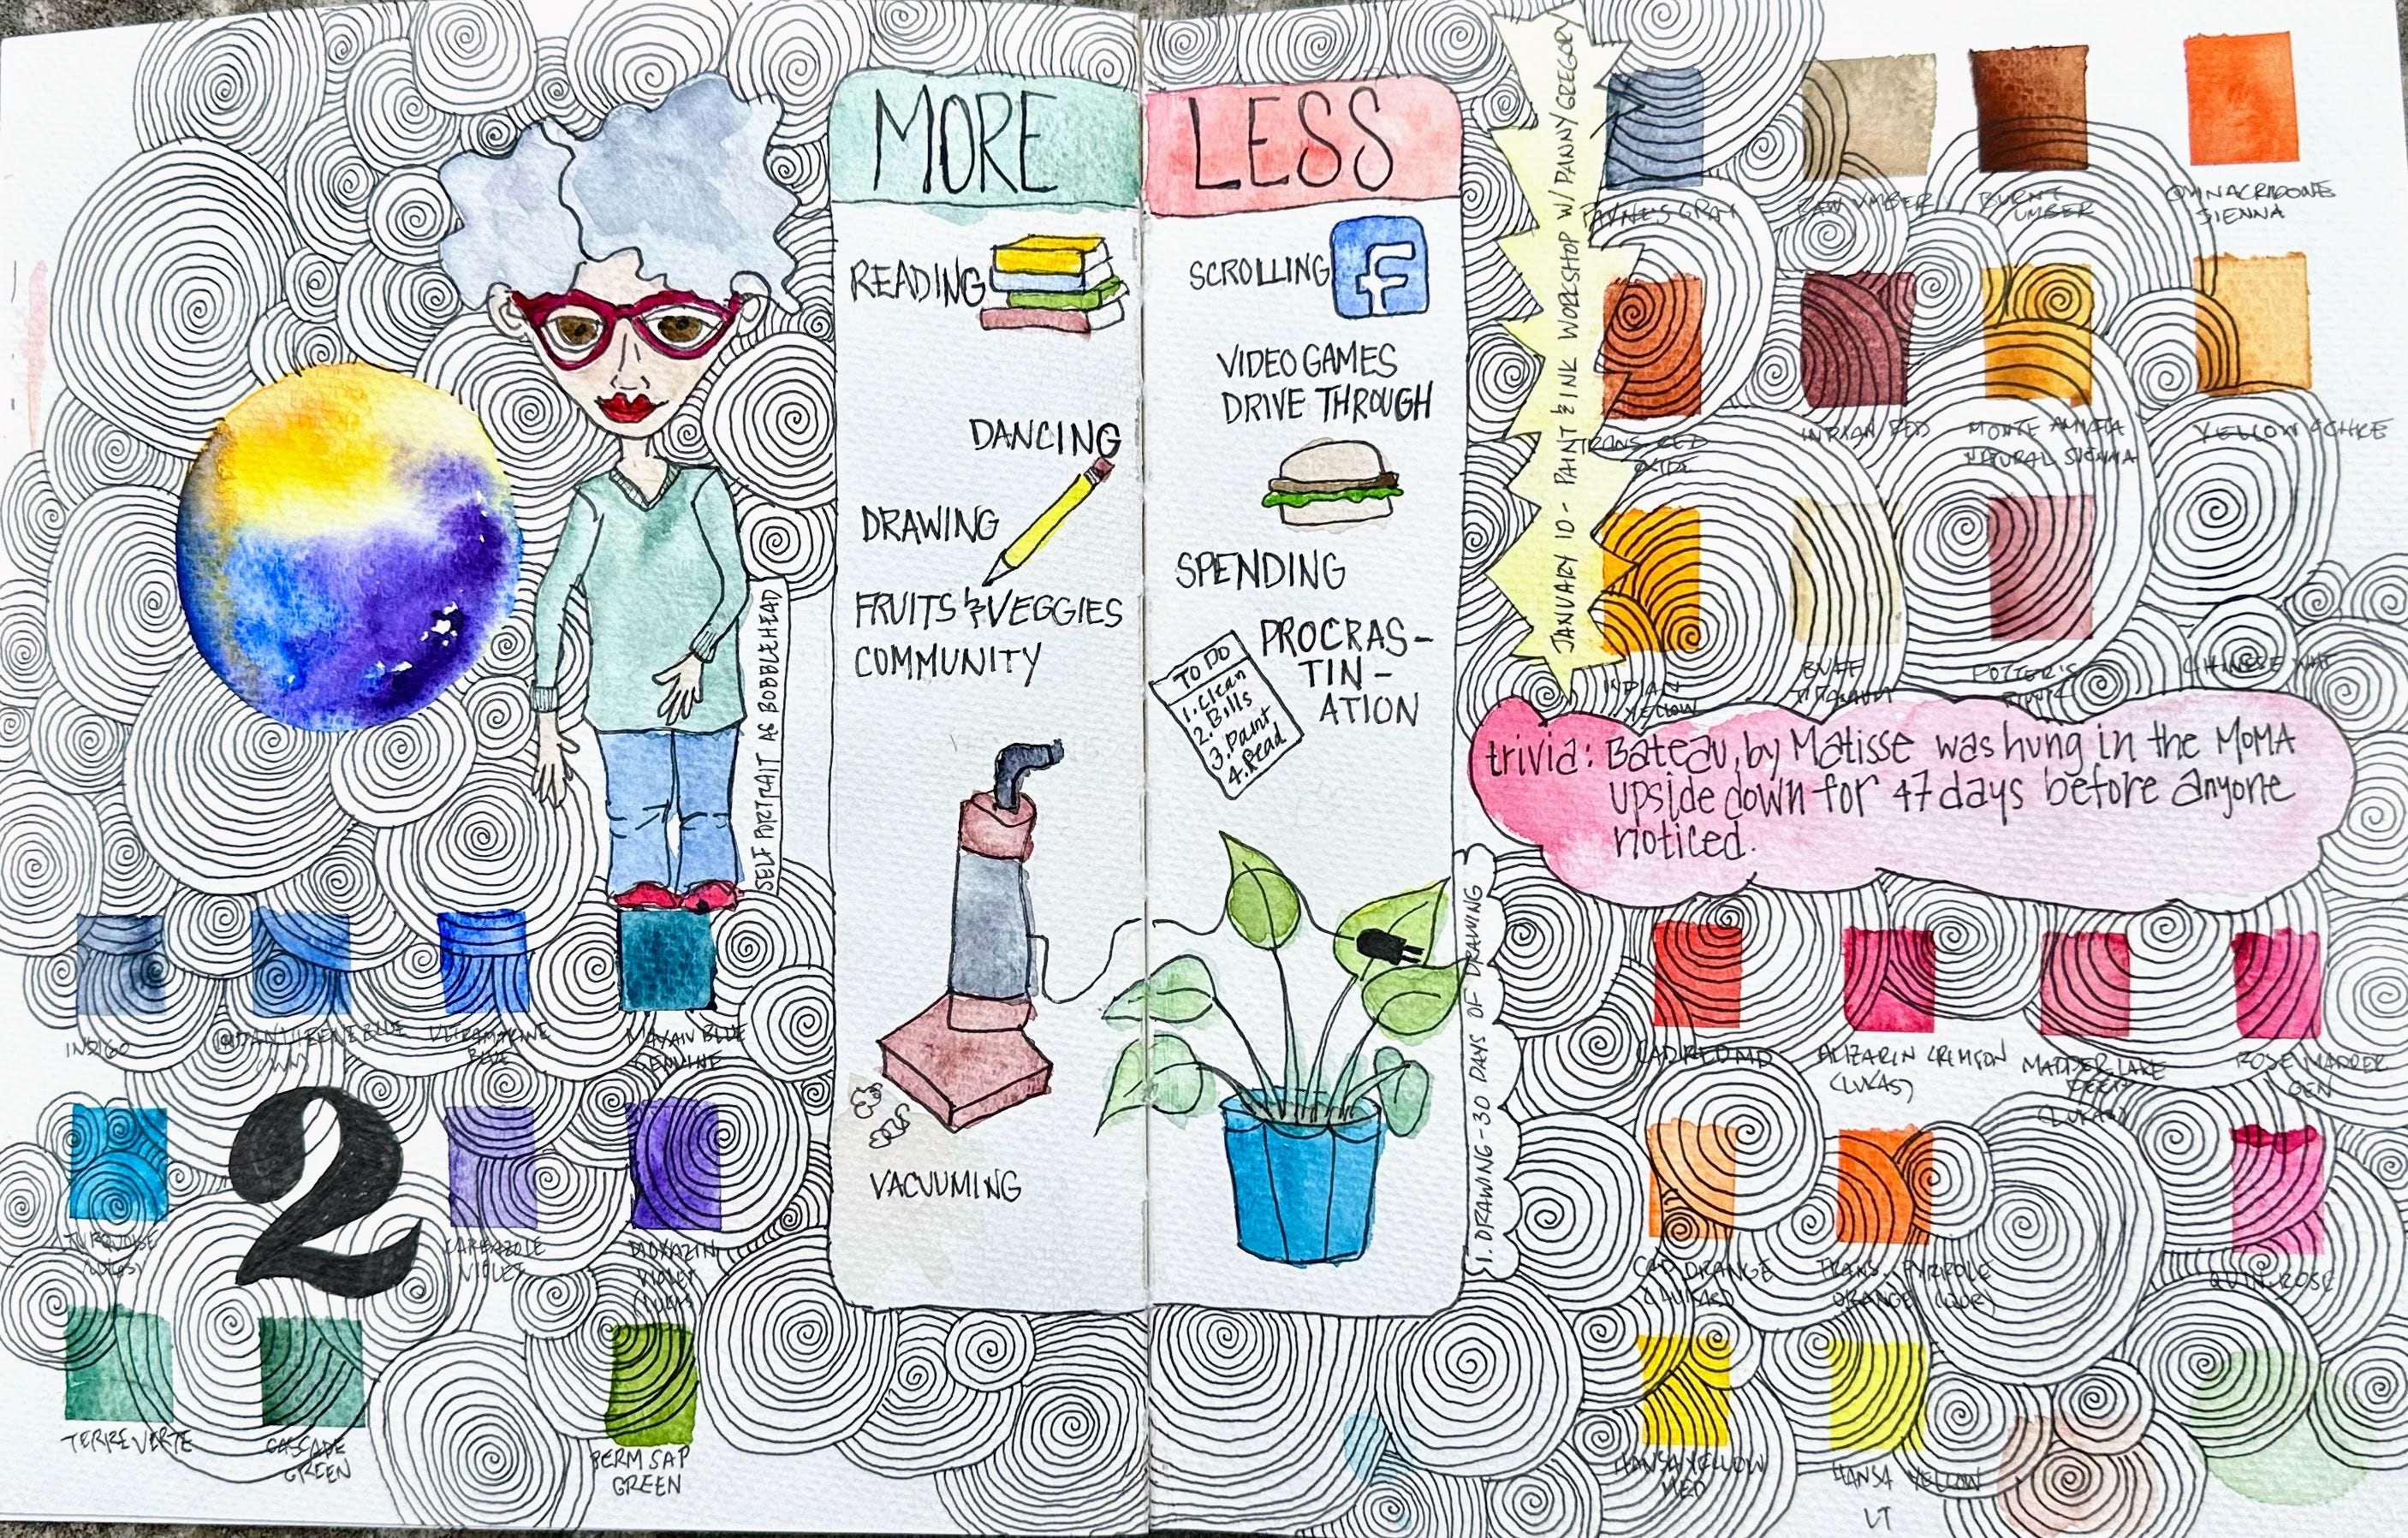 MORE
READING
DANCING
DRAWING
FRUITS & VEGGIES
COMMUNITY
VACUUMING
SELF PORTRAIT AS BOBBLEHEAD
INDIGO
ULTRAMARINE
BLUE
MAYAN BLUE
GENUINE
TURQUOISE
(LUKAS)
2
CARBAZOLE
VIOLET
VIOLET
(LUKAS)
TERRE VERTE
CASCADE
GREEN
PERM SAP
GREEN
LESS
SCROLLING
f
VIDEO GAMES
DRIVE THROUGH
SPENDING
PROCRAS-
TIN-
ATION
TO DO
1. Clean
2. Bills
3. Paint
4. Read
1. DRAWING - 30 DAYS OF DRAWING
JANUARY 10 - PAINT & INK WORKSHOP W/ DANNY GREGORY
PAYNE'S GRAY
RAW UMBER
BURNT
UMBER
QUINACRIDONE
SIENNA
TRANS RED
OXIDE
INDIAN RED
MONTE AMIATA
NATURAL SIENNA
YELLOW OCHRE
INDIAN
YELLOW
BUFF
TITANIUM
POTTER'S
PINK
CHINESE WHT
trivia: Bateau, by Matisse was hung in the MoMA
upside down for 47 days before anyone
noticed.
CAD RED MD
ALIZARIN CRIMSON
(LUKAS)
MADDER LAKE
DEEP
(LUKAS)
ROSE MADDER
GEN
CAD ORANGE
(LUKAS)
TRANS. PYRROLE
ORANGE (QOR)
QUIN. ROSE
HANSA YELLOW
MED
HANSA YELLOW
LT